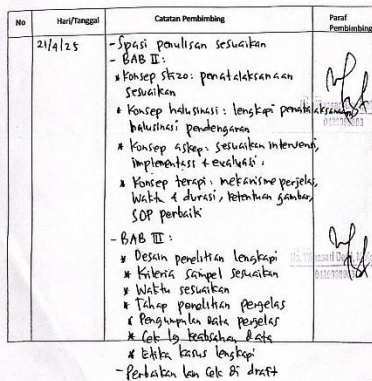 No
Hari/Tanggal
Catatan Pembimbing
Paraf
Pembimbing
21/4/25
- Spasi penulisan sesuaikan
- BAB II :
* Konsep skizo : penatalaksanaan
sesuaikan
* Konsep halusinasi : lengkapi penatalaksanaan
halusinasi pendengaran
* Konsep askep : sesuaikan intervensi,
implementasi + evaluasi,
* Konsep terapi : mekanisme perjelas,
waktu & durasi, ketentuan gambar,
SOP perbaiki
- BAB III :
* Desain penelitian lengkapi
* Kriteria sampel sesuaikan
* Waktu sesuaikan
* Tahap penelitian perjelas
* Pengumpulan data perjelas
* Cek lg keabsahan data
* Etika kasus lengkapi
- Perbaikan lain cek di draft